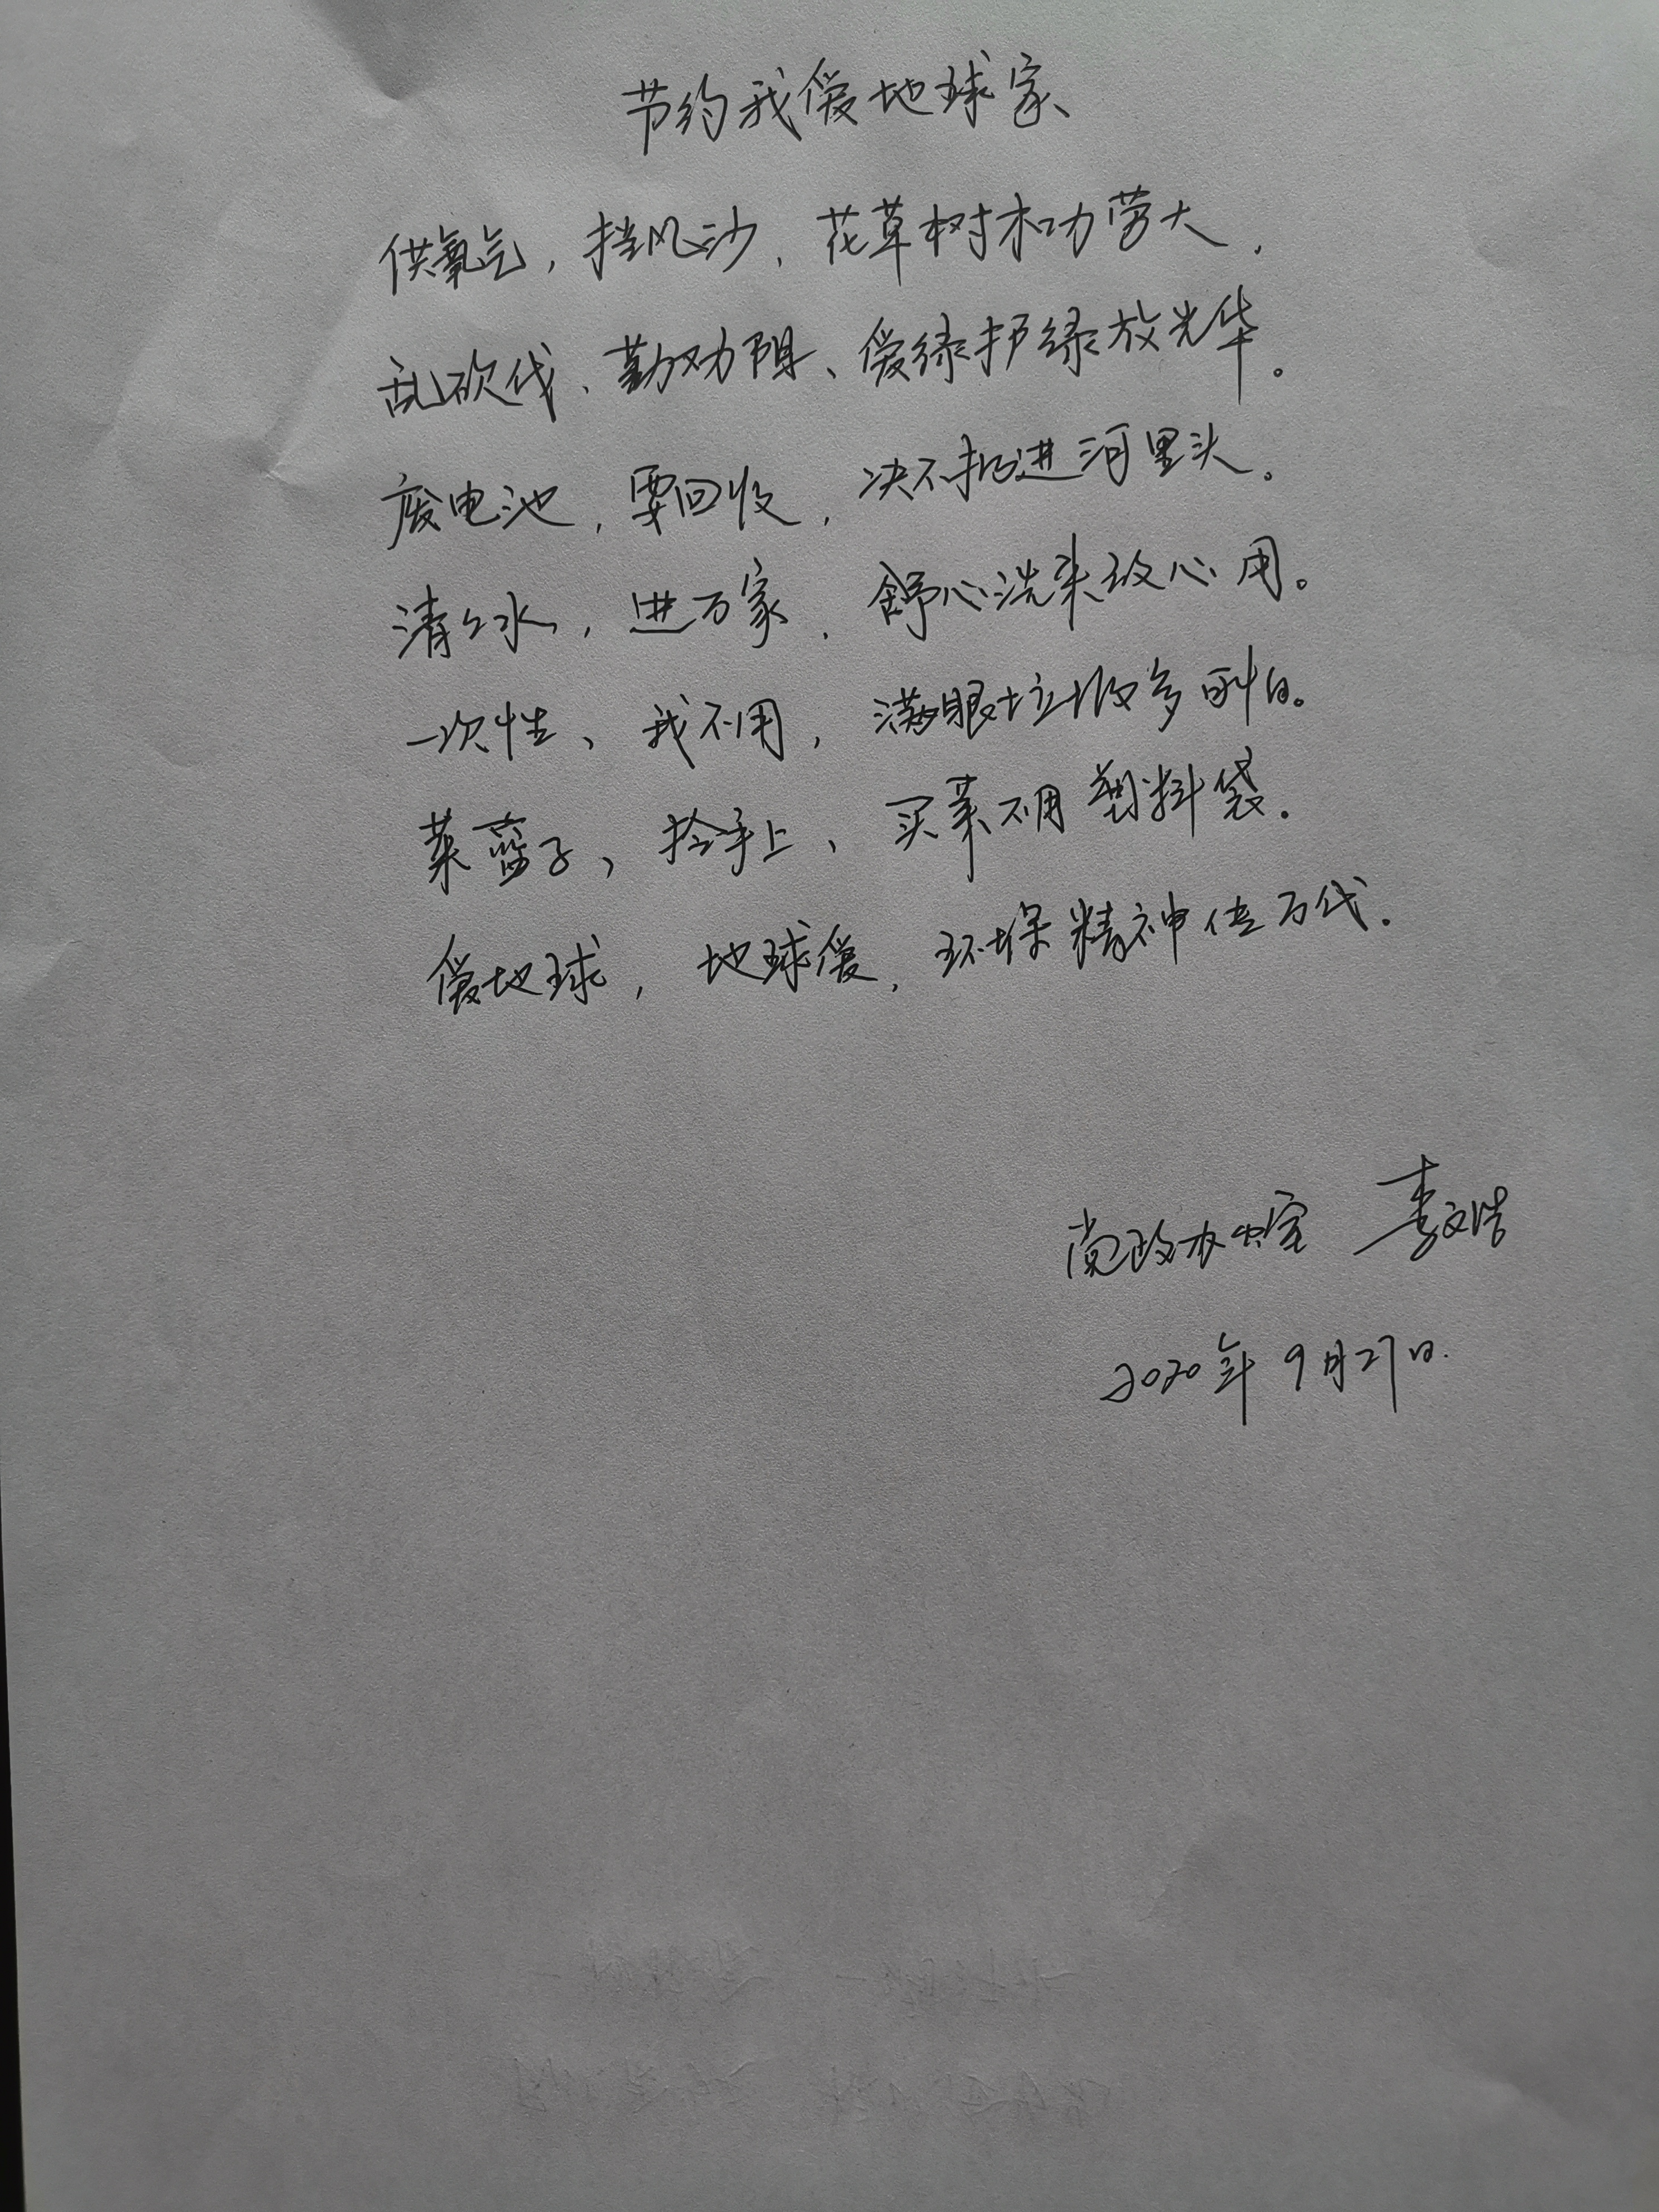 节约我爱地球家
供氧气，挡风沙，花草树木功劳大，
乱砍伐、勤劝阻、爱绿护绿放光华。
废电池，要回收，决不扔进河里头。
清清水，进万家，舒心洗来放心用。
一次性、我不用，满眼垃圾多可怕。
菜蓝子，拎手上、买菜不用塑料袋。
爱地球，地球爱，环保精神传万代.
党政办公室 李文浩
2020年9月27日.